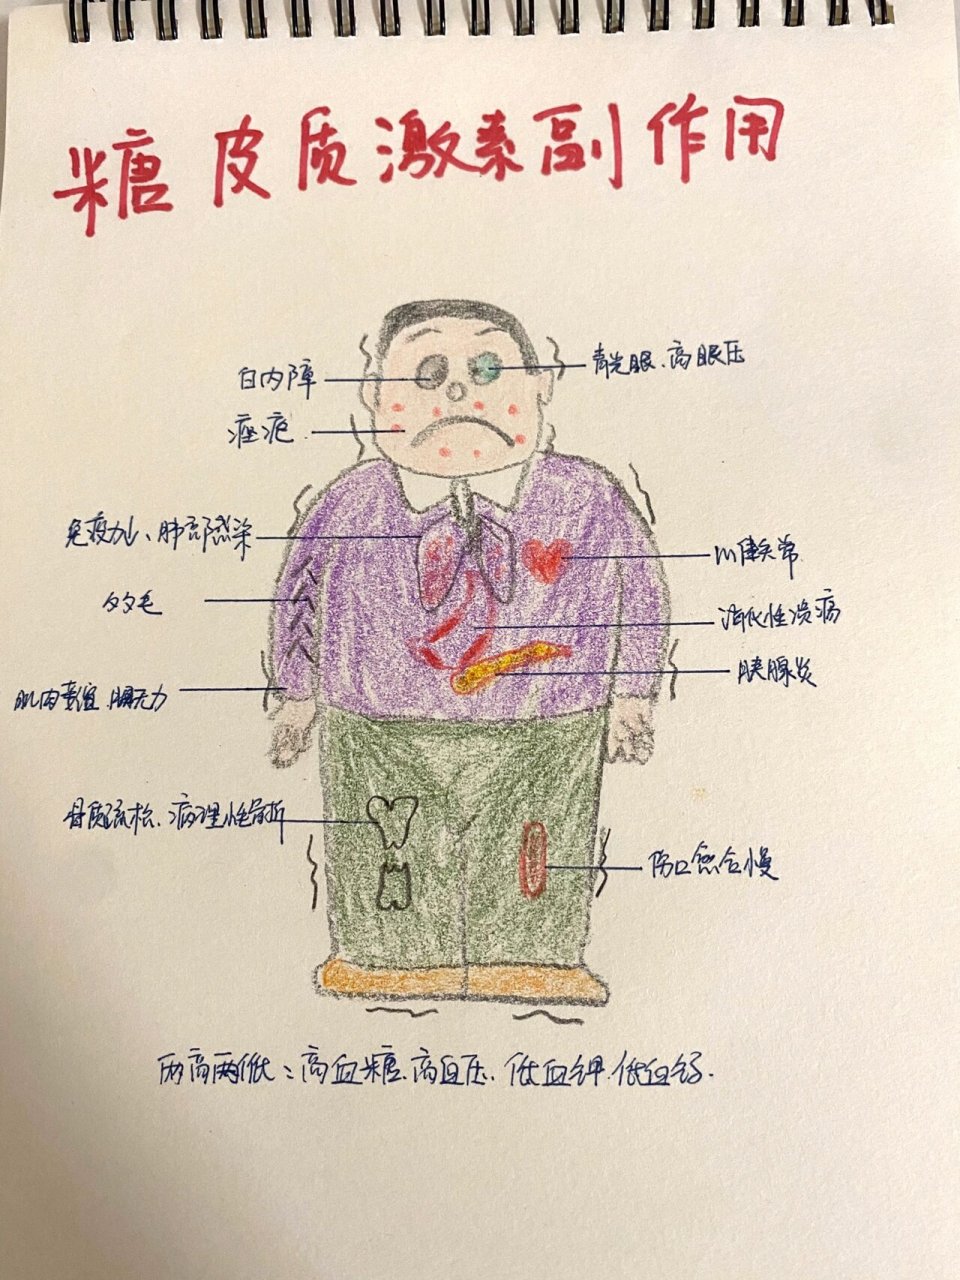 糖皮质激素副作用
白内障
青光眼、高眼压
痤疮
免疫力、肺部感染
心律失常
多毛
消化性溃疡
胰腺炎
肌肉萎缩
骨质疏松、病理性骨折
伤口愈合慢
两高两低：高血糖、高血压、低血钾、低血钙.